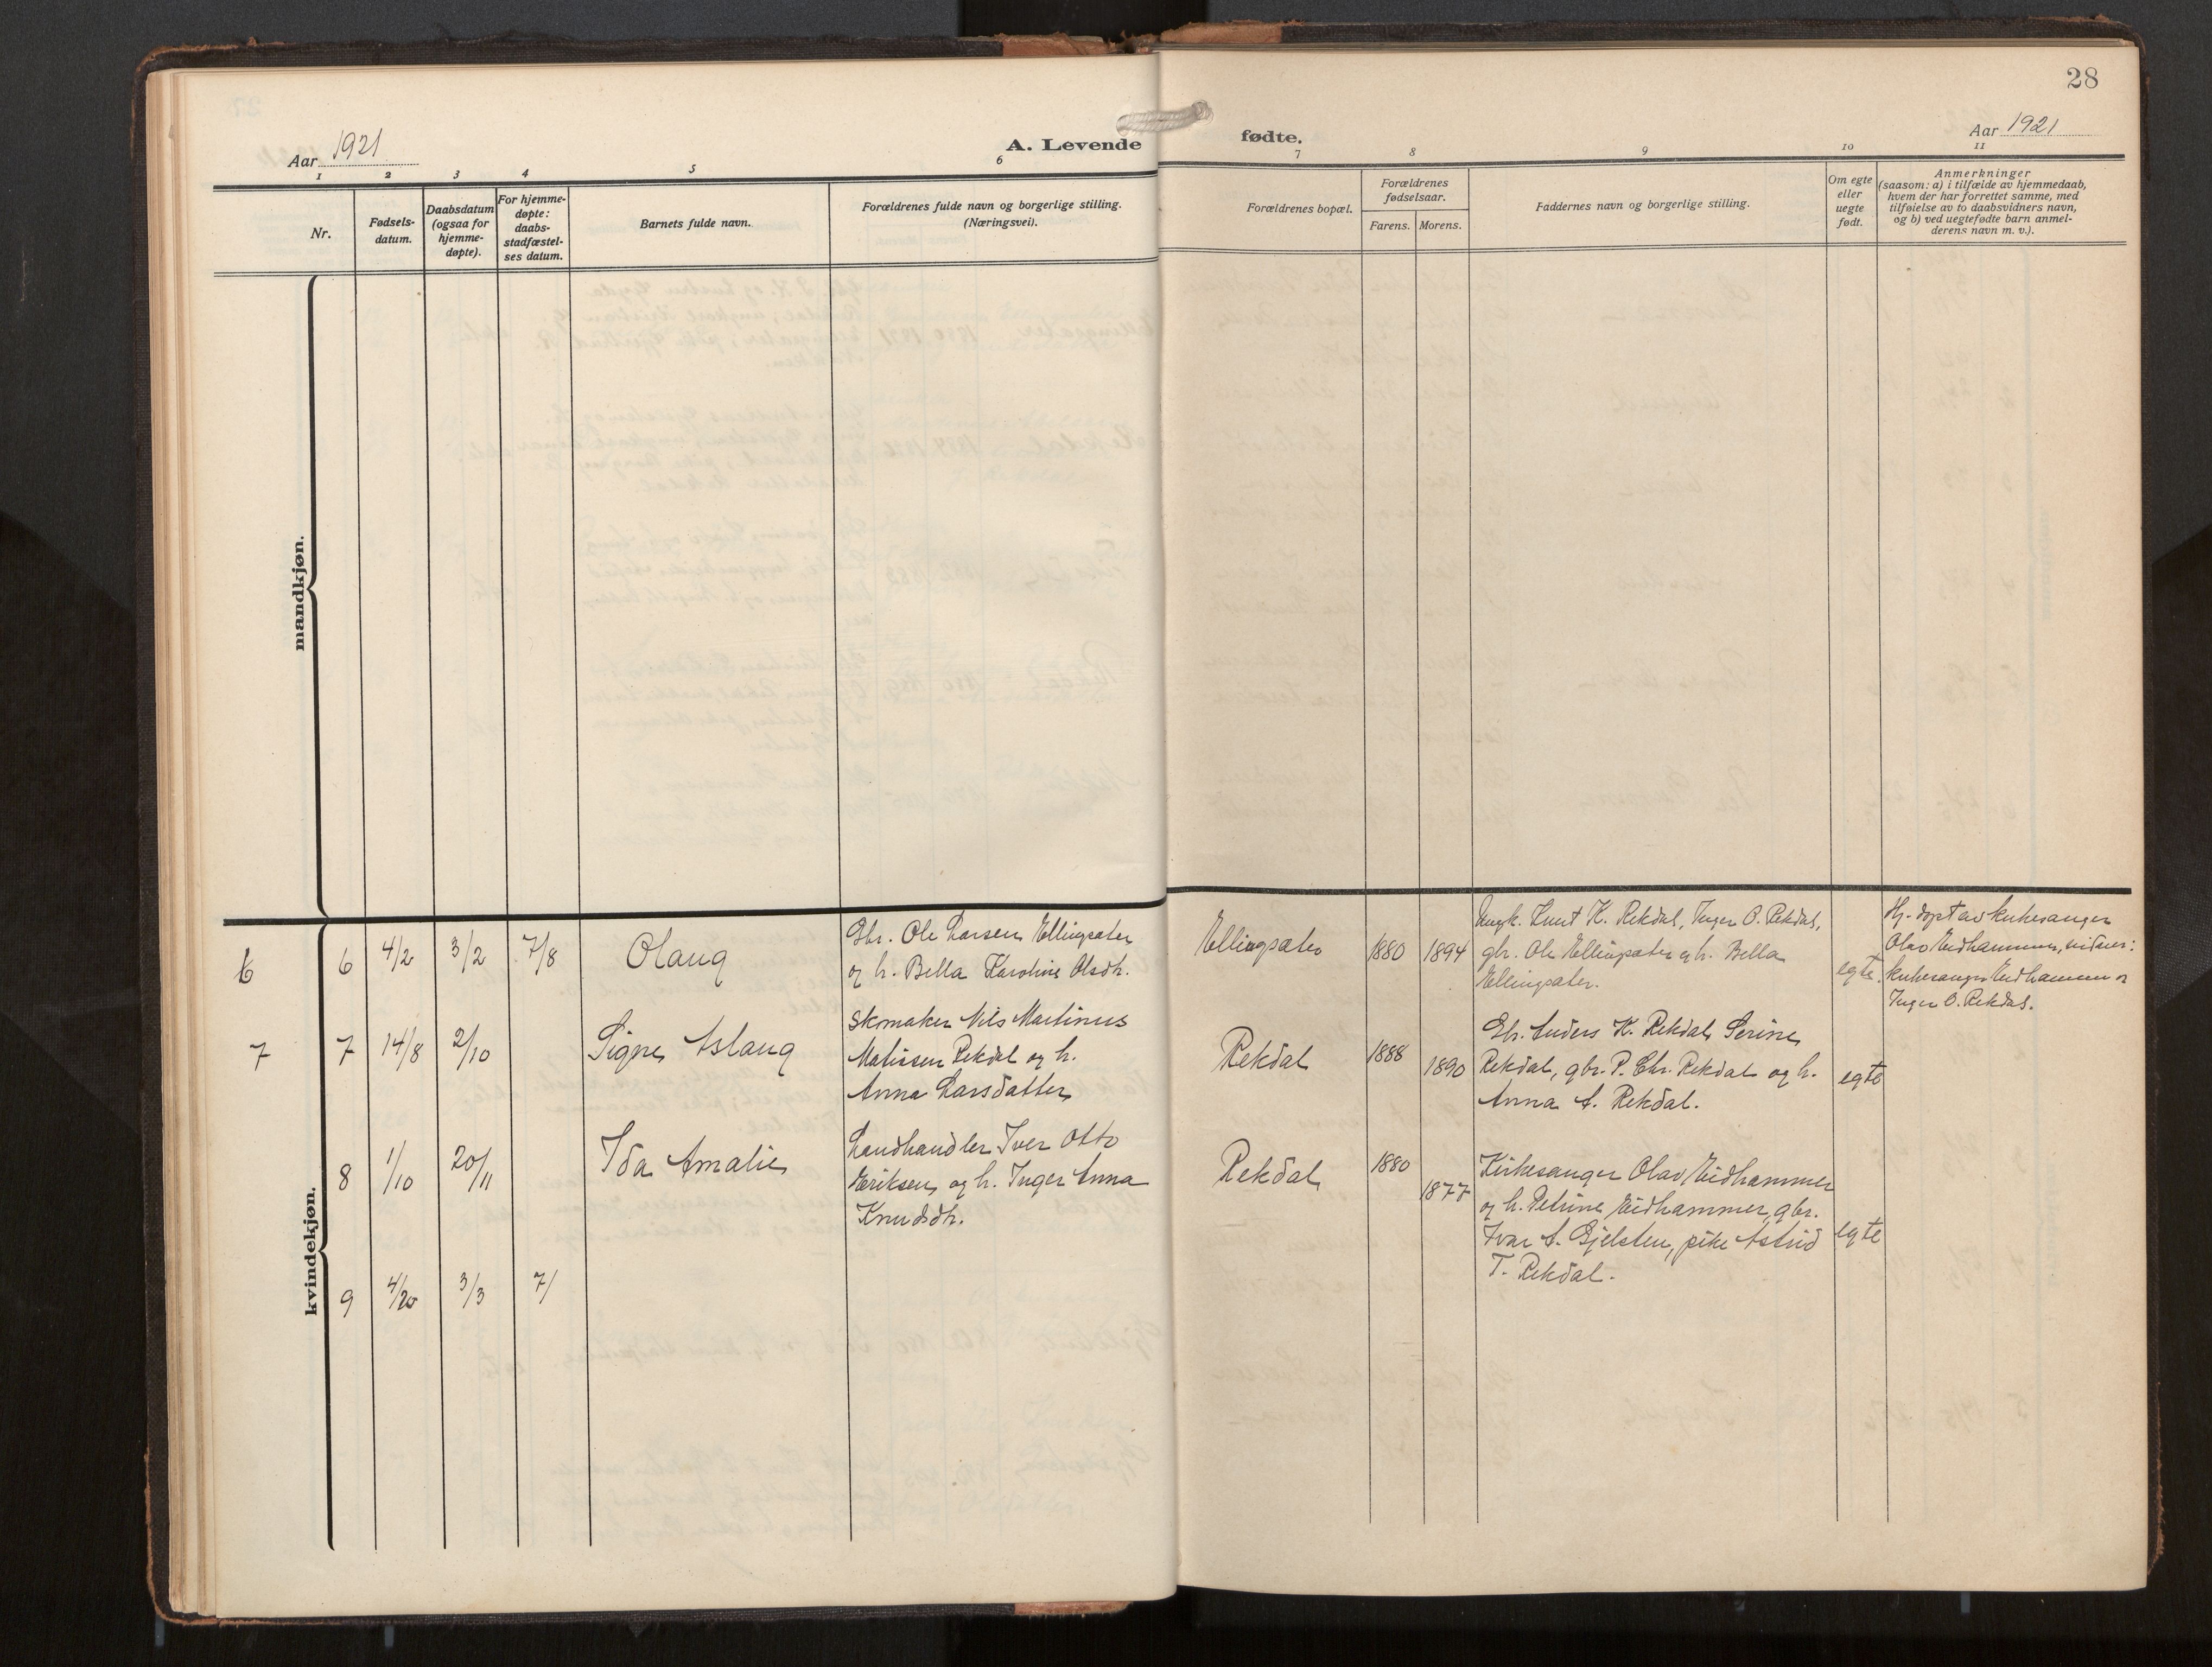 28
Aar 1921
A. Levende
fødte.
Aar 1921
1 2 3 4 5 6
7 8 9 10 11
Nr.
Fødsels-
datum.
Daabsdatum
(ogsaa for
hjemme-
døpte).
For hjemme-
døpte:
daabs-
stadfæstel-
ses datum.
Barnets fulde navn.
Forældrenes fulde navn og borgerlige stilling.
(Næringsvei).
Forældrenes bopæl.
Forældrenes
fødselsaar.
Farens. Morens.
Faddernes navn og borgerlige stilling.
Om egte
eller
uegte
født.
Anmerkninger
(saasom: a) i tilfælde av hjemmedaab,
hvem der har forrettet samme, med
tilføielse av to daabsvidners navn,
og b) ved uegtefødte barn anmel-
derens navn m. v.).
mandkjøn.
kvindekjøn.
6 6 4/2 3/2 7/8 Olaug
Gbr. Ole Larsen Ellingsæter
og h. Bella Karoline Olsdtr.
Ellingsæter 1880 1894
Ungk. Knut K. Rekdal, Inger O. Rekdal,
gbr. Ole Ellingsæter og h. Bella
Ellingsæter.
egte.
Hj. døpt av kirkesanger
Olav Eidhammer, vitner:
kirkesanger Eidhammer og
Inger O. Rekdal.
7 7 14/8 2/10 Signe Aslaug
Skomaker Nils Martinus
Matissen Rekdal og h.
Anna Larsdatter
Rekdal 1888 1890
Gbr. Anders K. Rekdal, Serine
Rekdal, gbr. P. Chr. Rekdal og h.
Anna A. Rekdal.
egte
8 1/10 20/11 Ida Amalie
Landhandler Iver Otto
Eriksen og h. Inger Anna
Knudsdtr.
Rekdal 1880 1877
Kirkesanger Olav Eidhammer
og h. Petrine Eidhammer, gbr.
Ivar A. Gjelsten, pike Astrid
T. Rekdal.
egte
9 4/20 3/3 7/